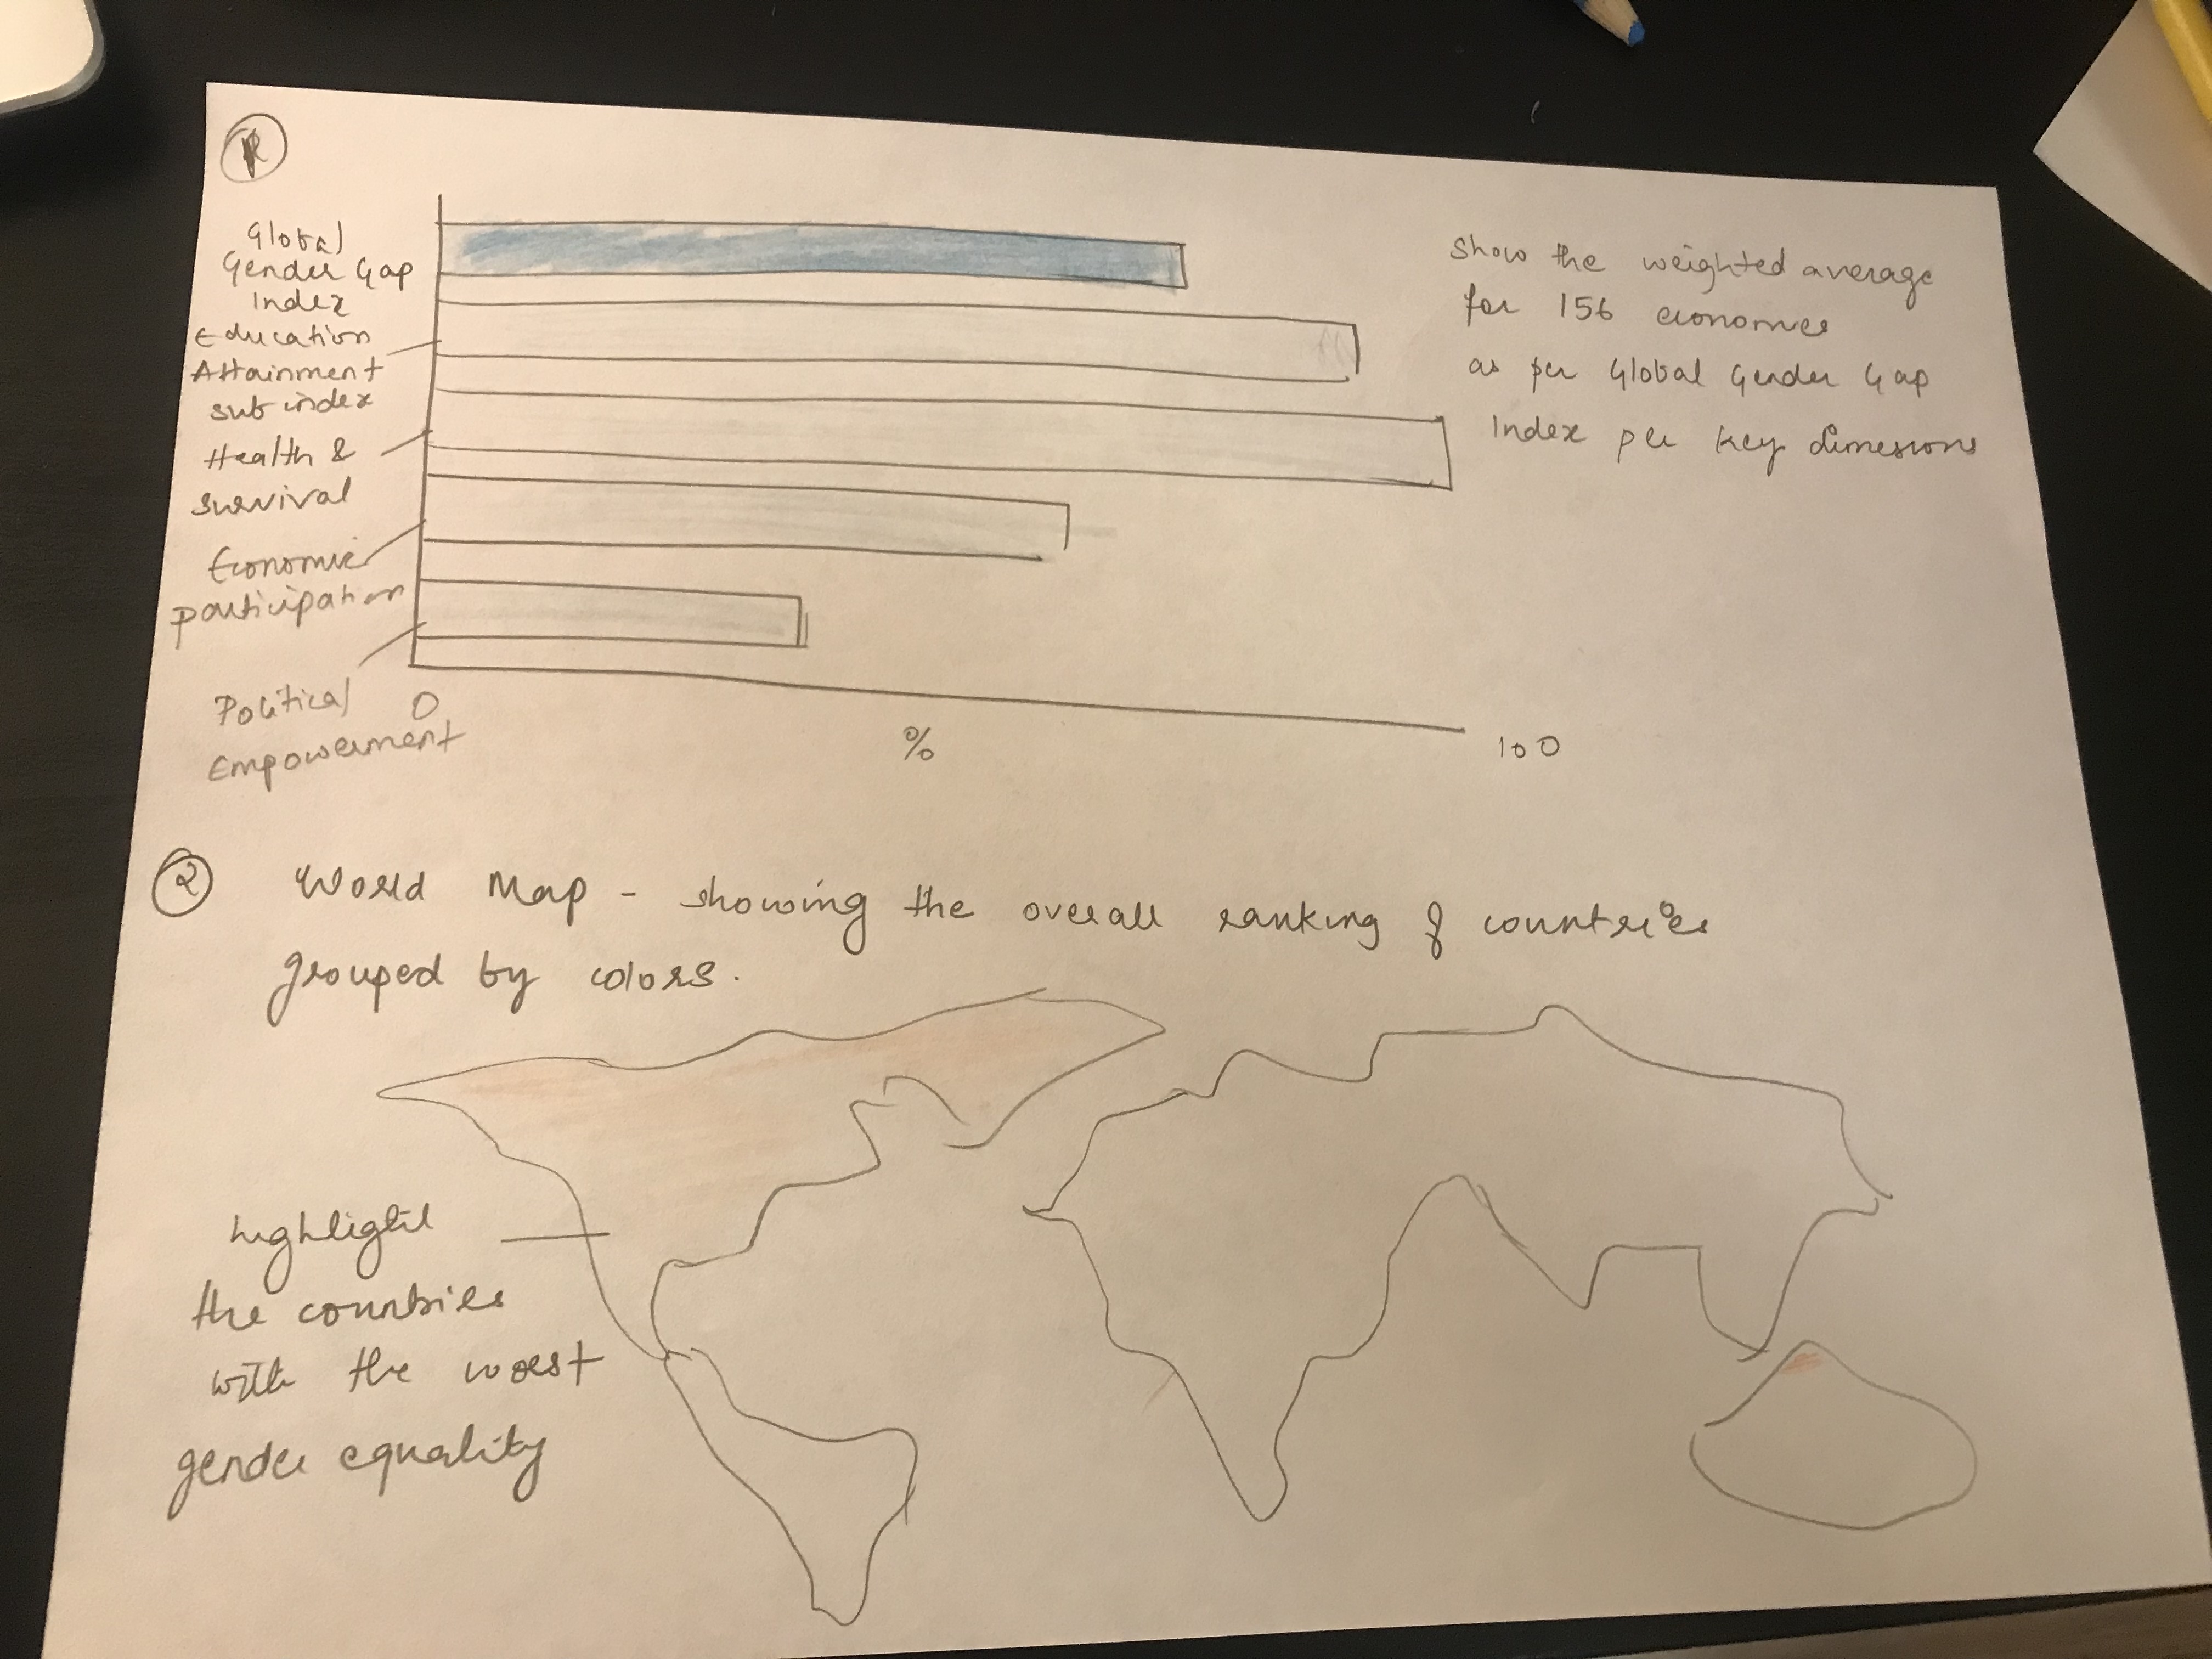 Global
Gender Gap
Index
Education
Attainment
sub index
Health &
Survival
Economic
participation
Political
Empowerment
0
%
100
Show the weighted average
for 156 economies
as per Global Gender Gap
Index per key dimesions
2
World Map - showing the overall ranking of countries
grouped by colors.
highlight
the countries
with the worst
gender equality